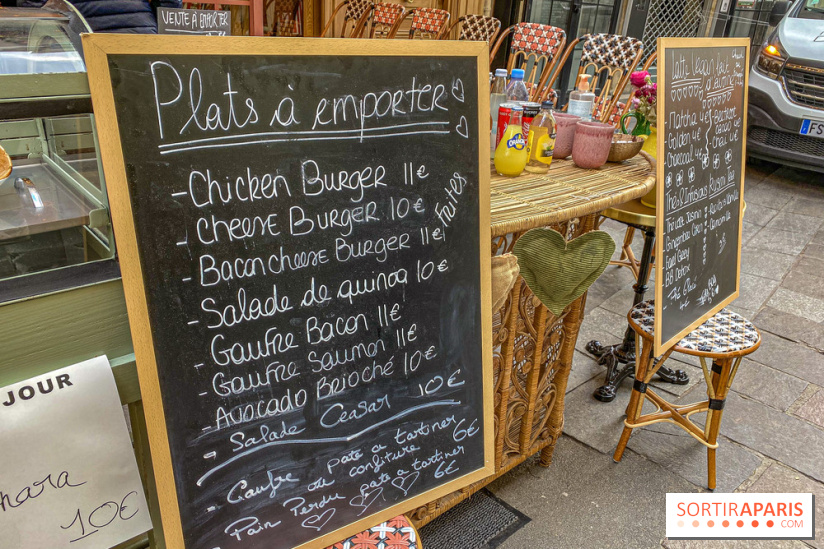 VENTE À EMPORTER
Plats à emporter
- Chicken Burger 11€
- Cheese Burger 10€
- Bacon cheese Burger 11€
Frites
- Salade de quinoa 10€
- Gaufre Bacon 11€
- Gaufre Saumon 11€
- Avocado Brioché 10€
- Salade Ceasar 10€
- Gaufre pate a tartiner 6€
ou confiture
- Pain Perdu pate a tartiner 6€
JOUR
10€
Latte
- Matcha 4€
- Golden 4€
- Charcoal 4€
Infusions
Earl Grey
FS
SORTIRAPARIS
.COM